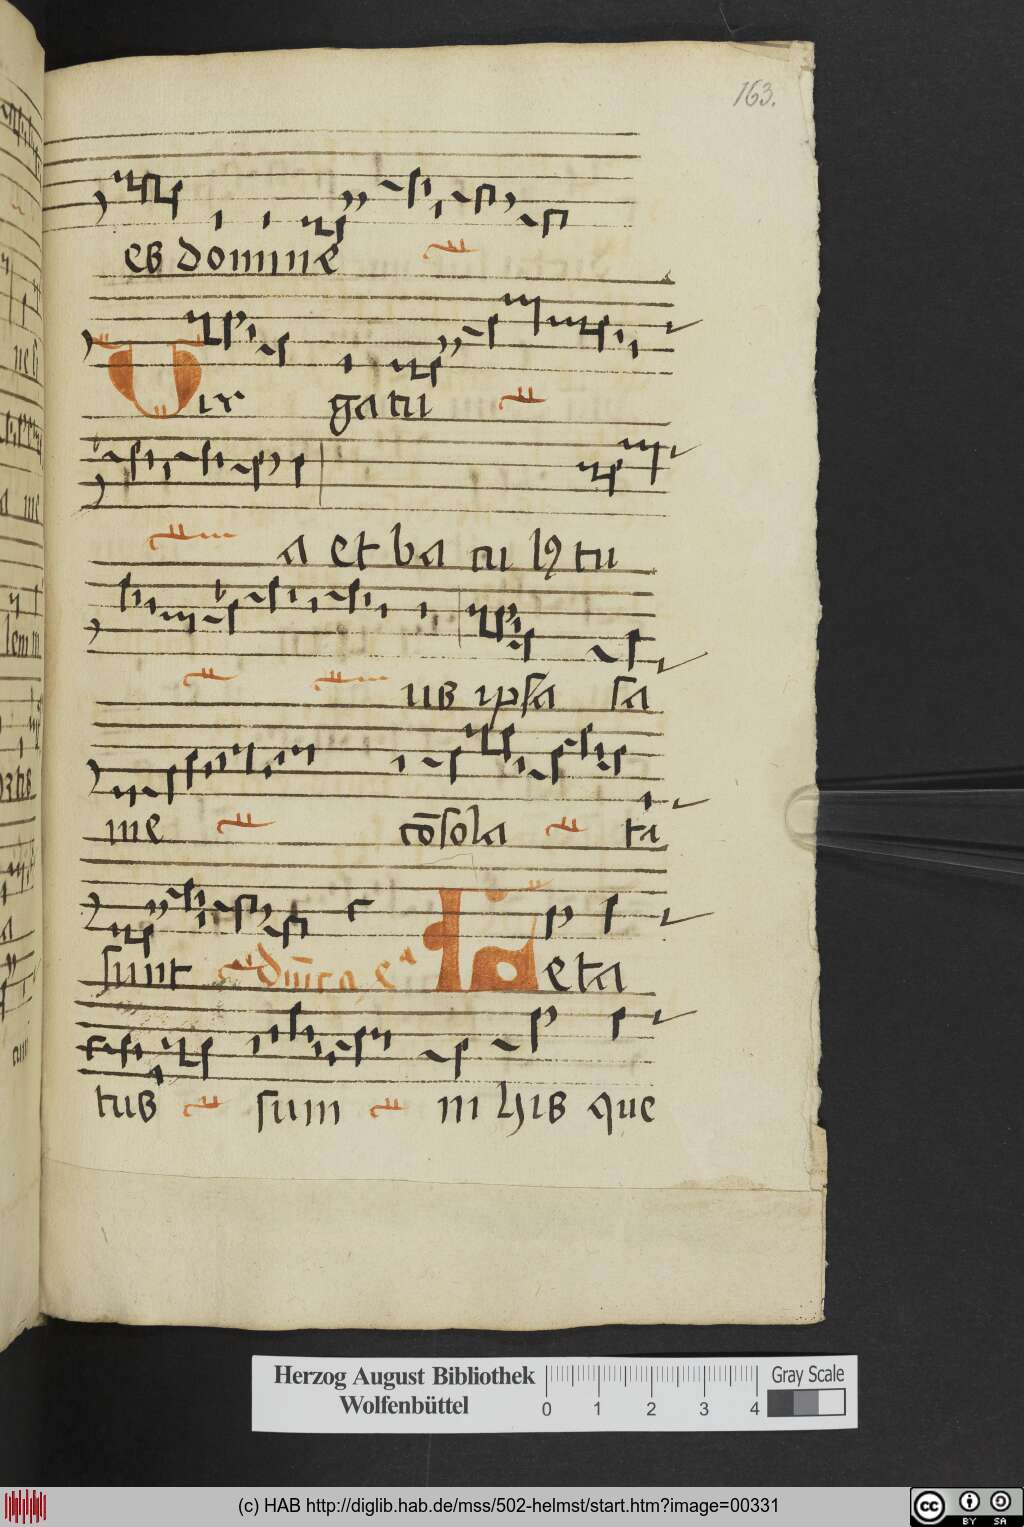 163.
es domine
Vir ga tu
a et ba cu ly tu
us ipsa sa
me cōsola ta
sunt Laeta
tus sum in his que
Herzog August Bibliothek
Wolfenbüttel
0 1 2 3 4
Gray Scale
(c) HAB http://diglib.hab.de/mss/502-helmst/start.htm?image=00331
cc BY SA